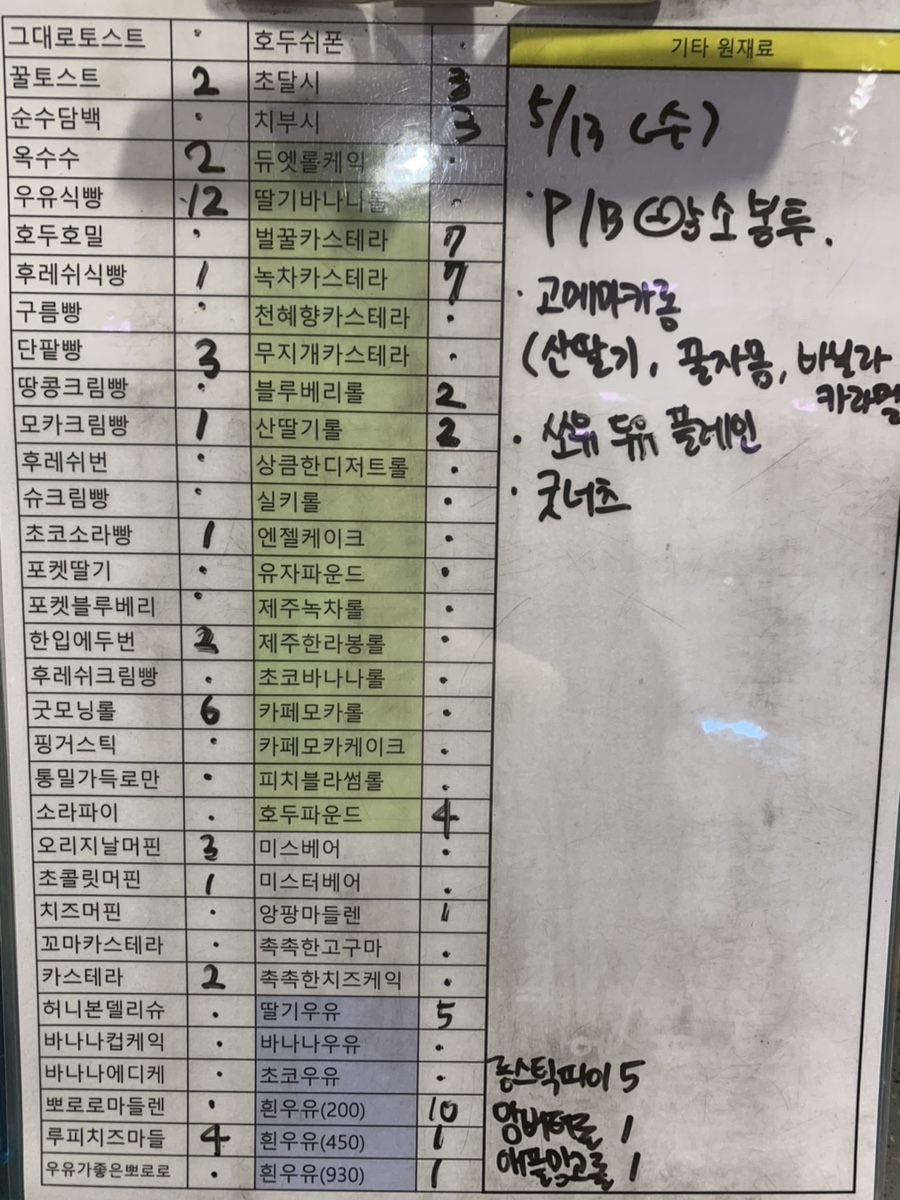 그대로토스트 · 호두쉬폰 · 기타 원재료
꿀토스트 2 초달시 3
순수담백 · 치부시 3 5/13 (수)
옥수수 2 듀엣롤케익 ·
우유식빵 12 딸기바나나롤 · · P/B 소봉투.
호두호밀 · 벌꿀카스테라 7
후레쉬식빵 1 녹차카스테라 7 · 고메마카롱
구름빵 · 천혜향카스테라 ·
단팥빵 3 무지개카스테라 · (산딸기, 꿀자몽, 바닐라
땅콩크림빵 · 블루베리롤 2 카라멜
모카크림빵 1 산딸기롤 2 · 쏘유 두유 플레인
후레쉬번 · 상큼한디저트롤 ·
슈크림빵 · 실키롤 · · 굿너츠
초코소라빵 1 엔젤케이크 ·
포켓딸기 · 유자파운드 ·
포켓블루베리 · 제주녹차롤 ·
한입에두번 2 제주한라봉롤 ·
후레쉬크림빵 · 초코바나나롤 ·
굿모닝롤 6 카페모카롤 ·
핑거스틱 · 카페모카케이크 ·
통밀가득로만 · 피치블라썸롤 ·
소라파이 · 호두파운드 4
오리지날머핀 3 미스베어 ·
초콜릿머핀 1 미스터베어 ·
치즈머핀 · 앙팡마들렌 1
꼬마카스테라 · 촉촉한고구마 ·
카스테라 2 촉촉한치즈케익 ·
허니본델리슈 · 딸기우유 5
바나나컵케익 · 바나나우유 ·
바나나에디케 · 초코우유 · 롱스틱파이 5
뽀로로마들렌 · 흰우유(200) 10 앙버터롤 1
루피치즈마들 4 흰우유(450) 1 애플망고롤 1
우유가좋은뽀로로 · 흰우유(930) 1